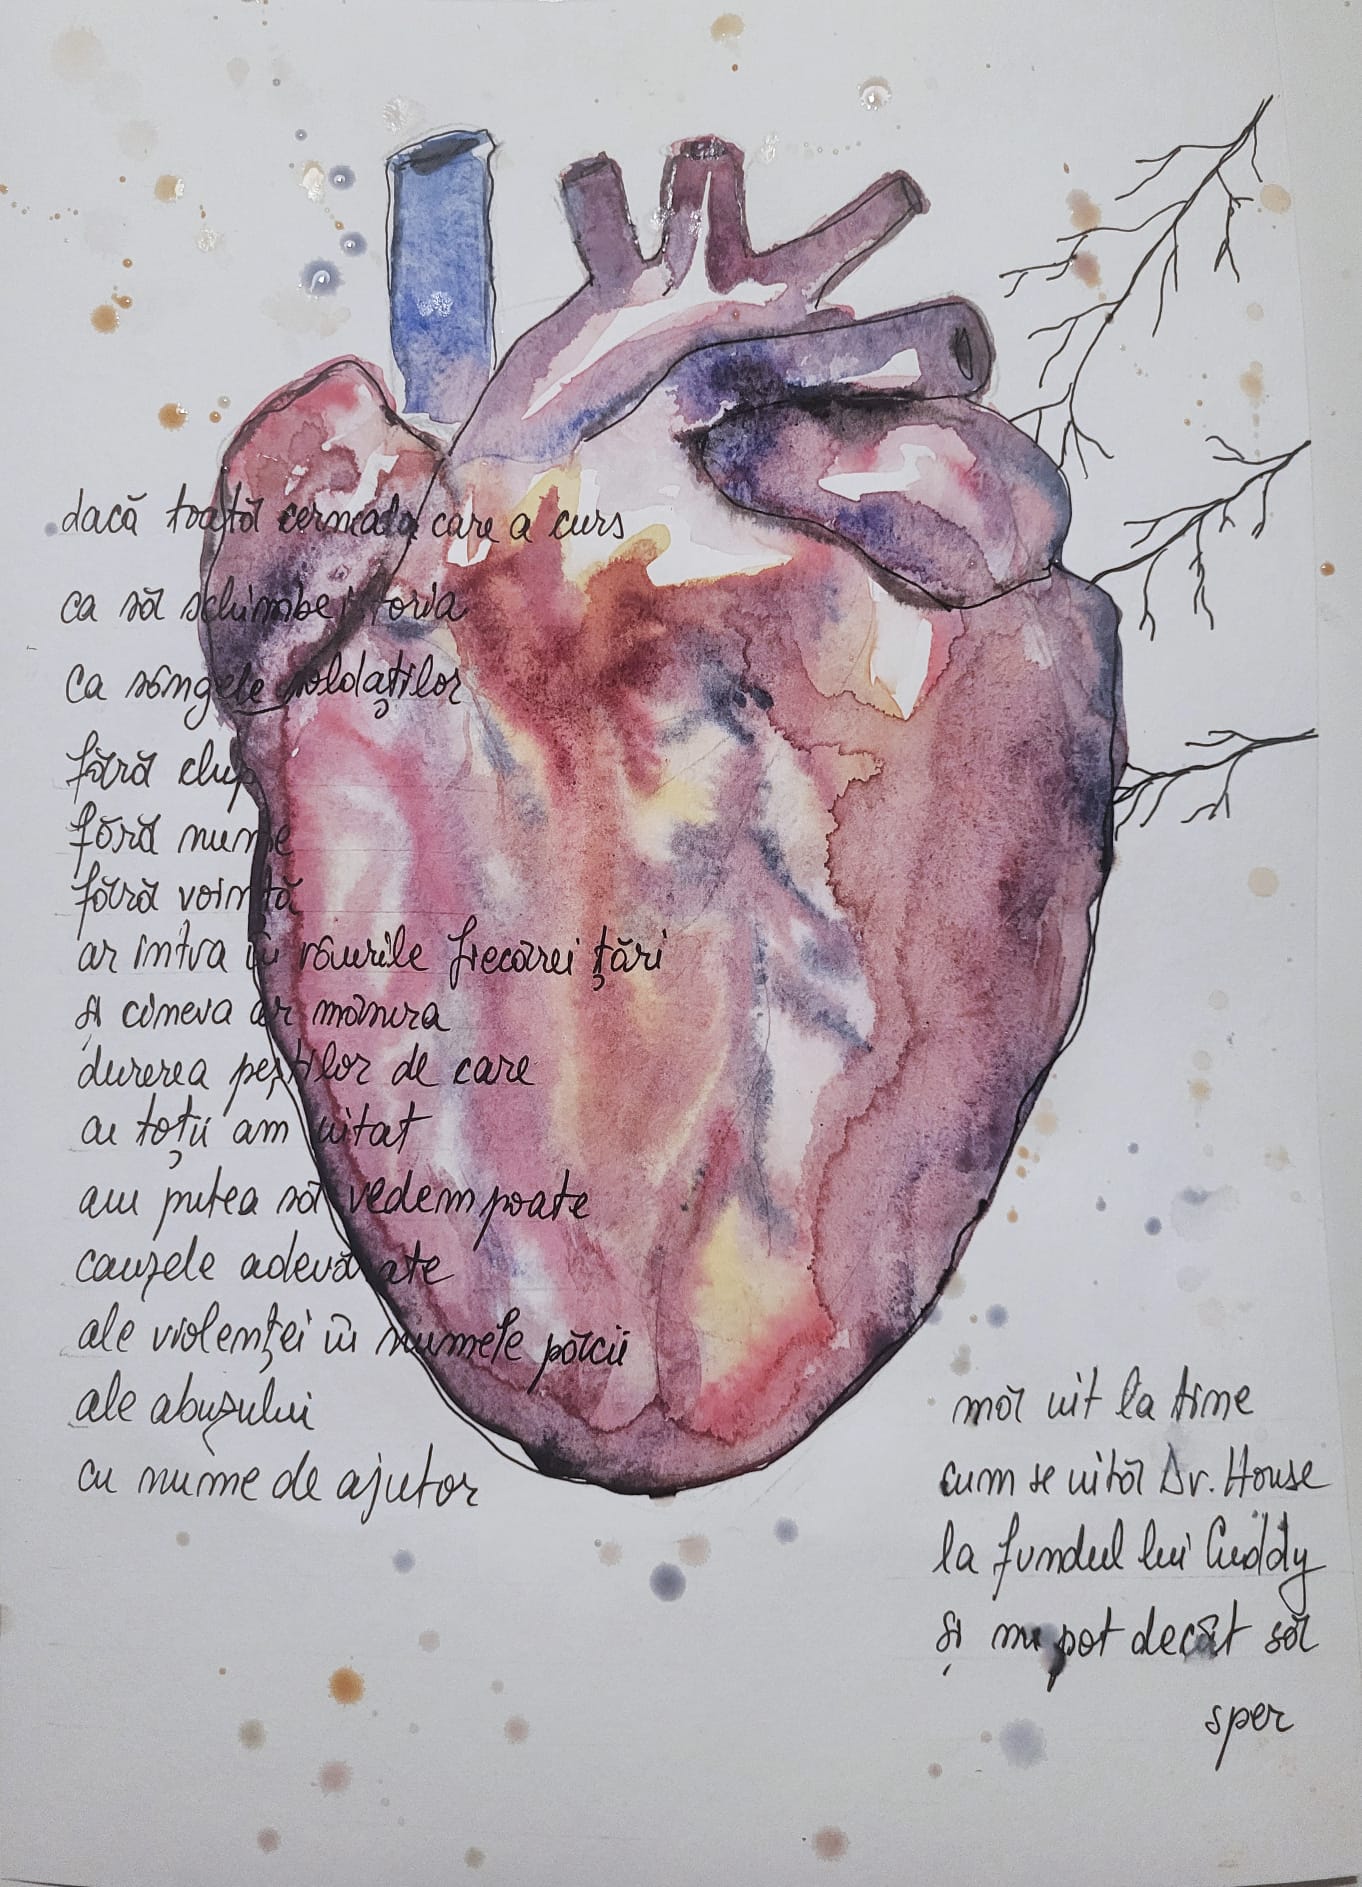 dacă toată cerneala care a curs
ca să schimbe istoria
ca sângele soldaților
fără chip
fără nume
fără voință
ar intra în râurile fiecărei țări
și cineva ar mânca
durerea peștilor de care
cu toții am uitat
am putea să vedem poate
cauzele adevărate
ale violenței în numele păcii
ale abuzului
cu nume de ajutor
mă uit la tine
cum se uită Dr. House
la fundul lui Cuddy
și nu pot decât să
sper